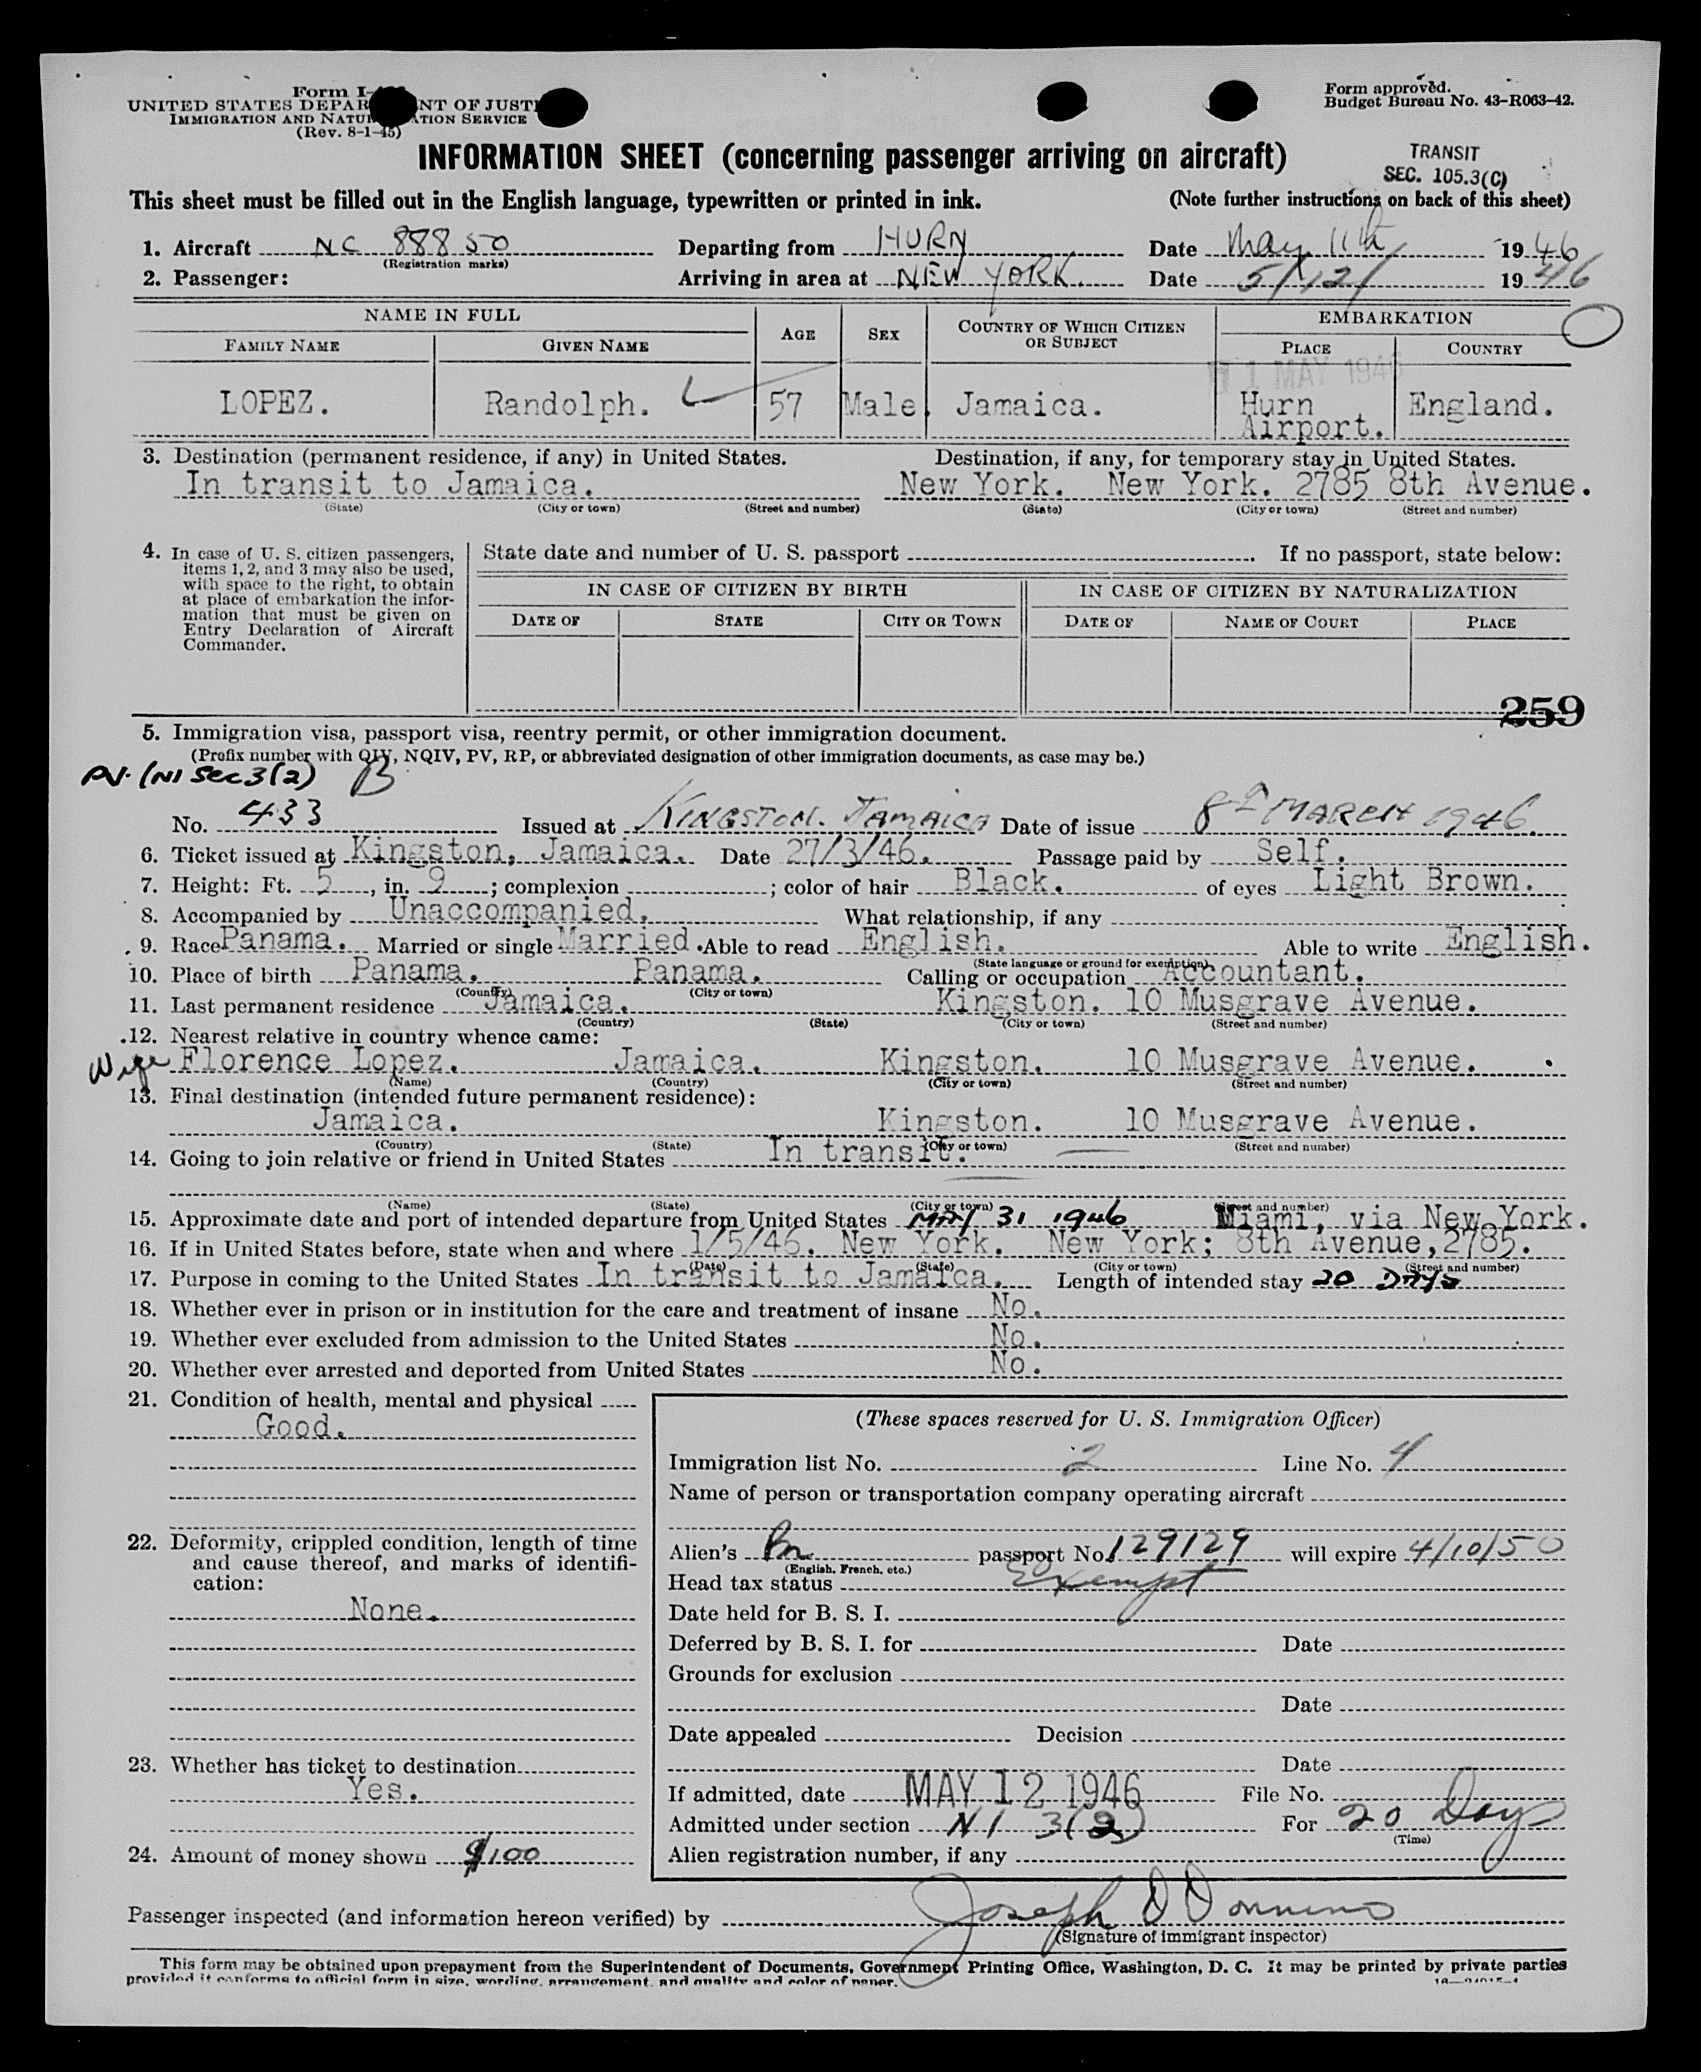 Form I-
UNITED STATES DEPAR NT OF JUST
IMMIGRATION AND NATU TION SERVICE
(Rev. 8-1-45)
Form approved.
Budget Bureau No. 43-R063-42.
INFORMATION SHEET (concerning passenger arriving on aircraft)
TRANSIT
SEC. 105.3(C)
This sheet must be filled out in the English language, typewritten or printed in ink. (Note further instructions on back of this sheet)
1. Aircraft NC 88850 Departing from HURN Date May 11th 1946
(Registration marks)
2. Passenger: Arriving in area at NEW YORK. Date 5/12/ 1946
NAME IN FULL AGE SEX COUNTRY OF WHICH CITIZEN OR SUBJECT EMBARKATION
FAMILY NAME GIVEN NAME PLACE COUNTRY
1 MAY 1946
LOPEZ. Randolph. 57 Male. Jamaica. Hurn Airport. England.
3. Destination (permanent residence, if any) in United States. Destination, if any, for temporary stay in United States.
In transit to Jamaica. New York. New York. 2785 8th Avenue.
(State) (City or town) (Street and number) (State) (City or town) (Street and number)
4. In case of U. S. citizen passengers,
items 1, 2, and 3 may also be used,
with space to the right, to obtain
at place of embarkation the infor-
mation that must be given on
Entry Declaration of Aircraft
Commander.
State date and number of U. S. passport . If no passport, state below:
IN CASE OF CITIZEN BY BIRTH IN CASE OF CITIZEN BY NATURALIZATION
DATE OF STATE CITY OR TOWN DATE OF NAME OF COURT PLACE
259
5. Immigration visa, passport visa, reentry permit, or other immigration document.
(Prefix number with QIV, NQIV, PV, RP, or abbreviated designation of other immigration documents, as case may be.)
PV. (NI Sec 3(2) B
No. 433 Issued at KINGSTON. JAMAICA Date of issue 8th MARCH 1946.
6. Ticket issued at Kingston, Jamaica. Date 27/3/46. Passage paid by Self.
7. Height: Ft. 5, in. 9; complexion ; color of hair Black. of eyes Light Brown.
8. Accompanied by Unaccompanied. What relationship, if any
9. Race Panama. Married or single Married. Able to read English. Able to write English.
(State language or ground for exemption)
10. Place of birth Panama. Panama. Calling or occupation Accountant.
(Country) (City or town)
11. Last permanent residence Jamaica. Kingston. 10 Musgrave Avenue.
(Country) (State) (City or town) (Street and number)
12. Nearest relative in country whence came:
Wife Florence Lopez. Jamaica. Kingston. 10 Musgrave Avenue.
(Name) (Country) (City or town) (Street and number)
13. Final destination (intended future permanent residence):
Jamaica. Kingston. 10 Musgrave Avenue.
(Country) (State) (City or town) (Street and number)
14. Going to join relative or friend in United States In transit.
(Name) (State) (City or town) (Street and number)
15. Approximate date and port of intended departure from United States MAY 31 1946 Miami, via New York.
16. If in United States before, state when and where 1/5/46. New York. New York; 8th Avenue, 2785.
(Date) (State) (City or town) (Street and number)
17. Purpose in coming to the United States In transit to Jamaica. Length of intended stay 20 DAYS
18. Whether ever in prison or in institution for the care and treatment of insane No.
19. Whether ever excluded from admission to the United States No.
20. Whether ever arrested and deported from United States No.
21. Condition of health, mental and physical
Good.
22. Deformity, crippled condition, length of time
and cause thereof, and marks of identifi-
cation:
None.
23. Whether has ticket to destination
Yes.
24. Amount of money shown $100
(These spaces reserved for U. S. Immigration Officer)
Immigration list No. 2 Line No. 4
Name of person or transportation company operating aircraft
Alien's Br passport No. 129129 will expire 4/10/50
(English, French, etc.)
Head tax status Exempt
Date held for B. S. I.
Deferred by B. S. I. for Date
Grounds for exclusion
Date
Date appealed Decision
Date
If admitted, date MAY 12 1946 File No.
Admitted under section NI 3(2) For 20 Days
(Time)
Alien registration number, if any
Passenger inspected (and information hereon verified) by Joseph D
(Signature of immigrant inspector)
This form may be obtained upon prepayment from the Superintendent of Documents, Government Printing Office, Washington, D. C. It may be printed by private parties
provided it conforms to official form in size, wording, arrangement, and quality and color of paper.